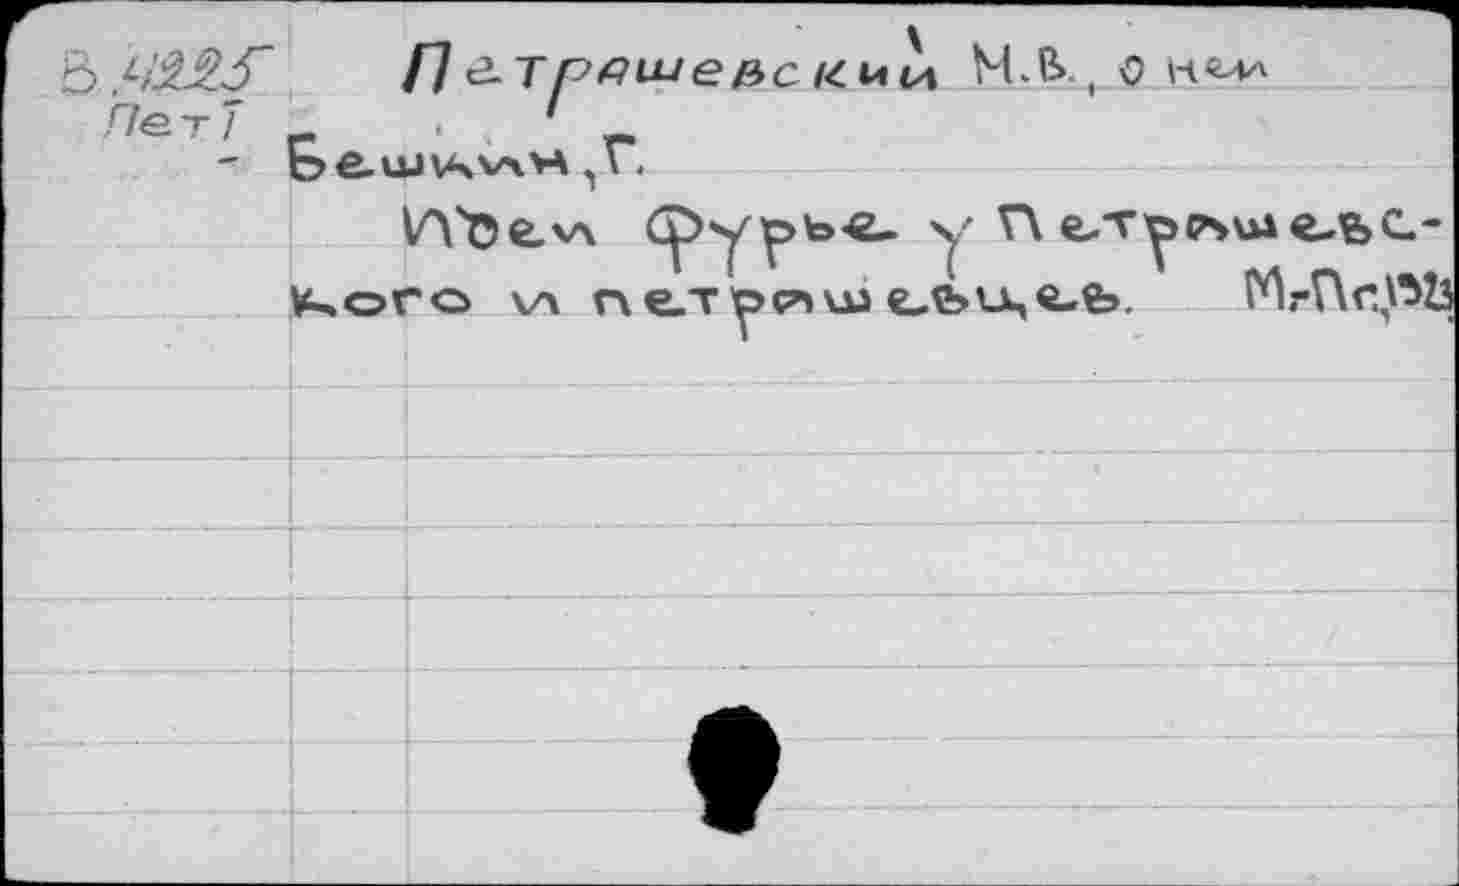 В.4225 Петрашевский М.В., о нем
Пет 7
- Бешкин, Г.
Идеи Фурье у Петрашевс-
кого и петрашевцев.